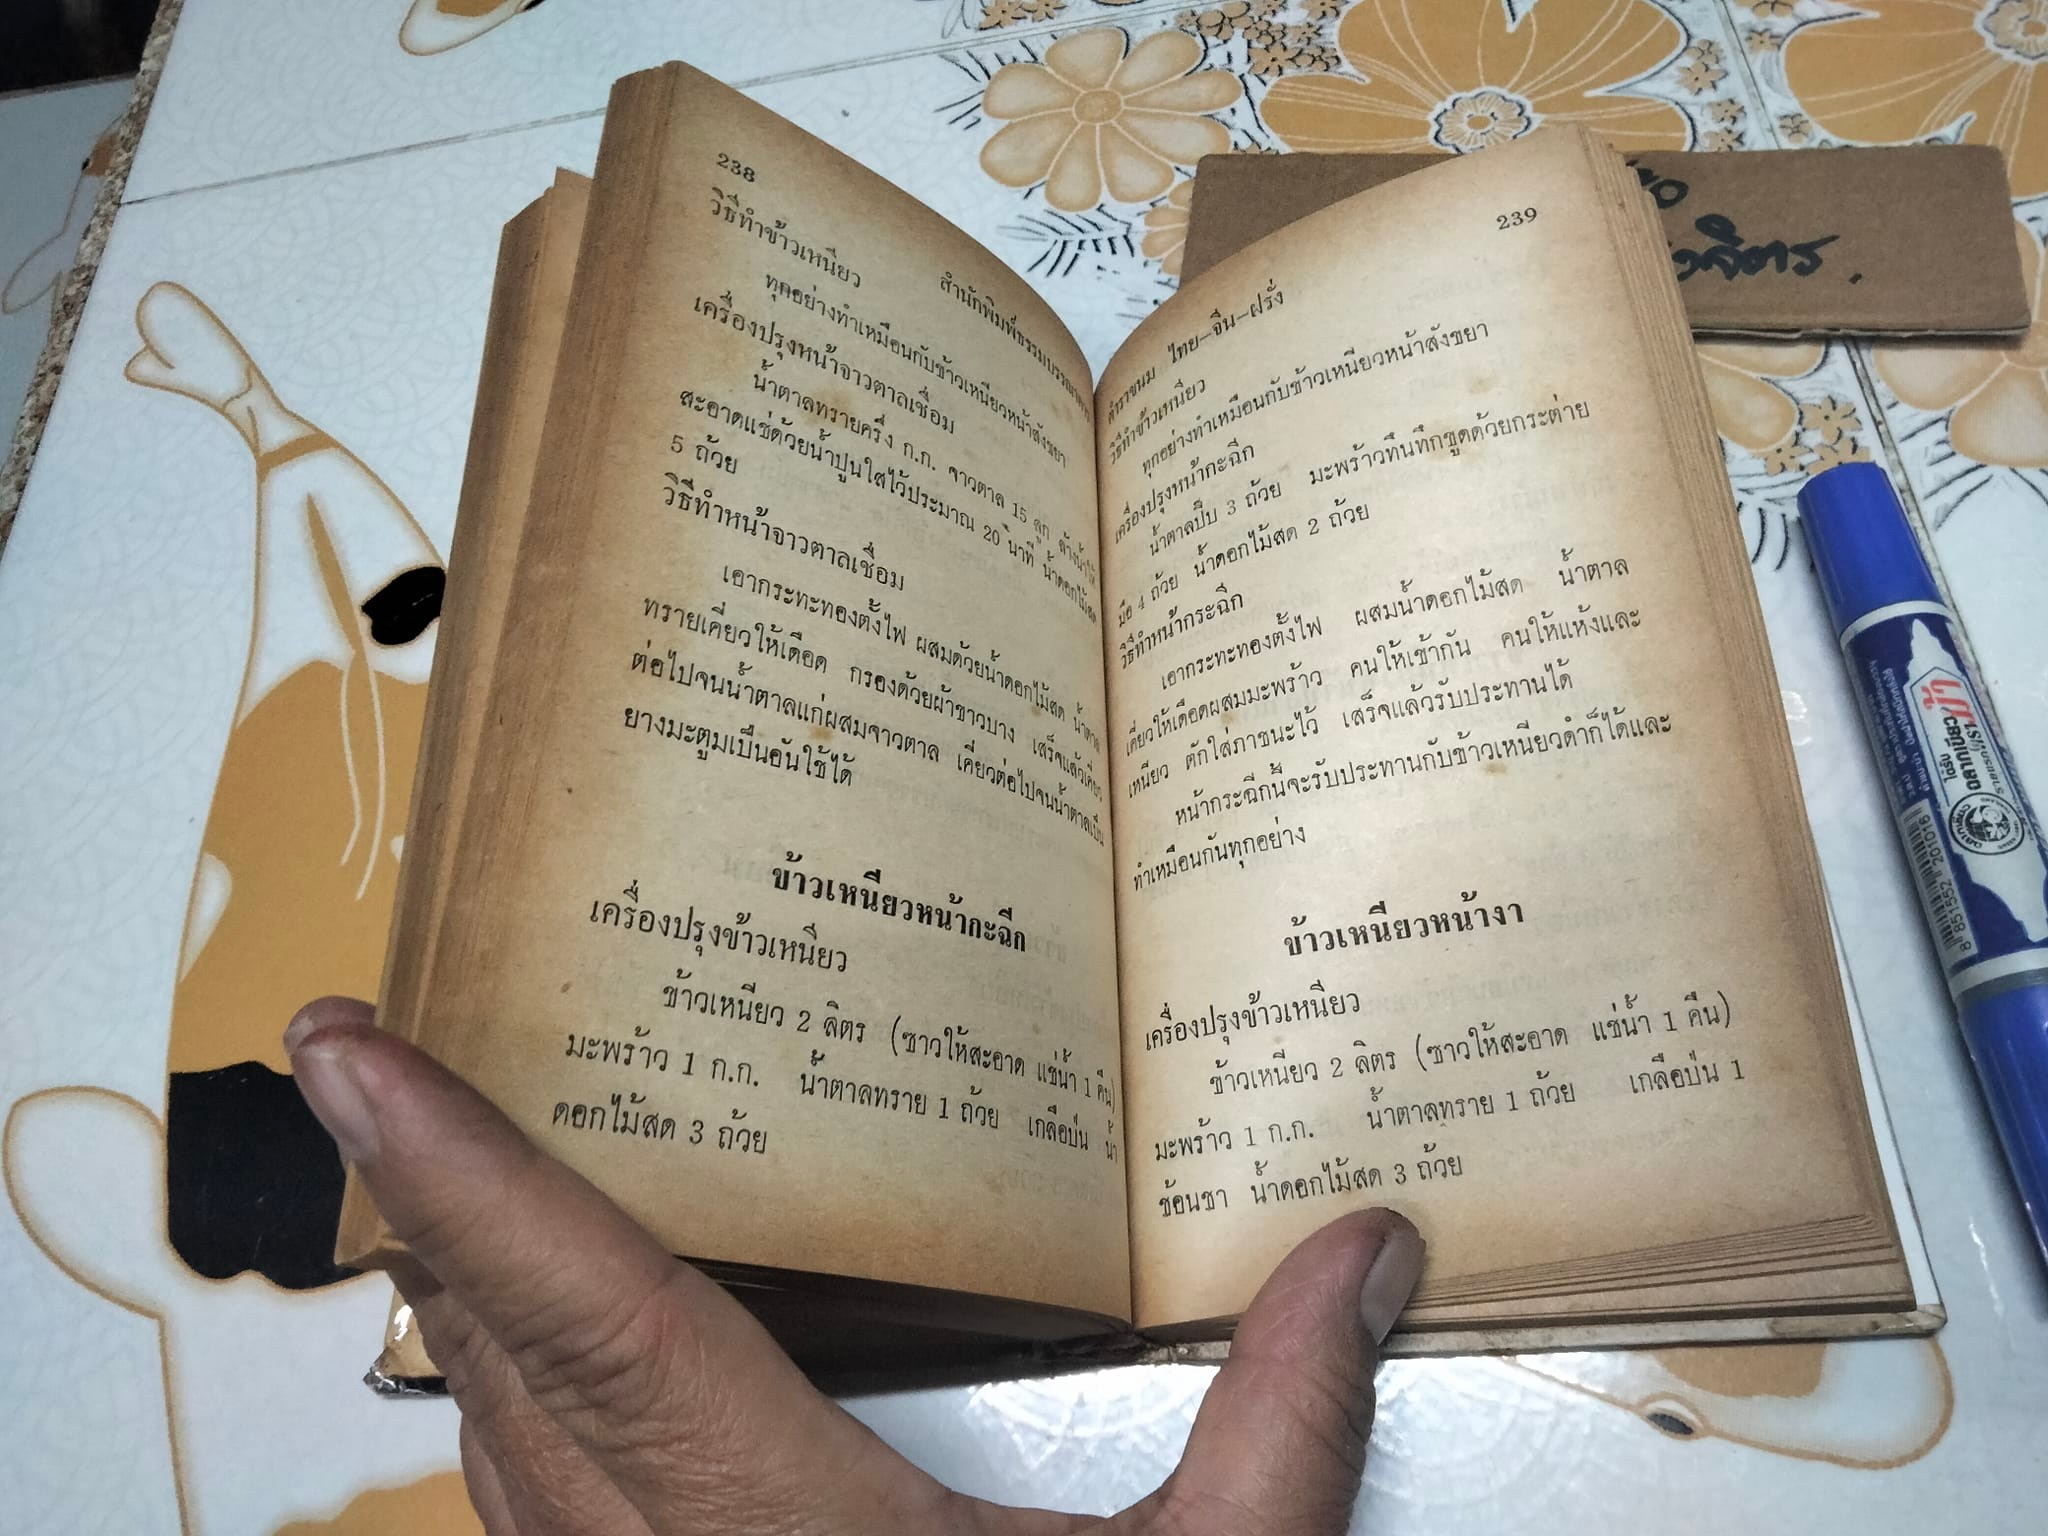 238
สำนักพิมพ์ธรรมบรรณาคาร
วิธีทำข้าวเหนียว
ทุกอย่างทำเหมือนกับข้าวเหนียวหน้าสังขยา
เครื่องปรุงหน้าจาวตาลเชื่อม
น้ำตาลทรายครึ่ง ก.ก. จาวตาล 15 ลูก ล้างน้ำให้
สะอาดแช่ด้วยน้ำปูนใสไว้ประมาณ 20 นาที น้ำดอกไม้สด
5 ถ้วย
วิธีทำหน้าจาวตาลเชื่อม
เอากระทะทองตั้งไฟ ผสมด้วยน้ำดอกไม้สด น้ำตาล
ทรายเคี่ยวให้เดือด กรองด้วยผ้าขาวบาง เสร็จแล้วเคี่ยว
ต่อไปจนน้ำตาลแก่ผสมจาวตาล เคี่ยวต่อไปจนน้ำตาลเป็น
ยางมะตูมเป็นอันใช้ได้
ข้าวเหนียวหน้ากะฉีก
เครื่องปรุงข้าวเหนียว
ข้าวเหนียว 2 ลิตร (ซาวให้สะอาด แช่น้ำ 1 คืน)
มะพร้าว 1 ก.ก. น้ำตาลทราย 1 ถ้วย เกลือป่น น้ำ
ดอกไม้สด 3 ถ้วย
239
ตำราขนม ไทย-จีน-ฝรั่ง
วิธีทำข้าวเหนียว
ทุกอย่างทำเหมือนกับข้าวเหนียวหน้าสังขยา
เครื่องปรุงหน้ากะฉีก
น้ำตาลปี๊บ 3 ถ้วย มะพร้าวทึนทึกขูดด้วยกระต่าย
มือ 4 ถ้วย น้ำดอกไม้สด 2 ถ้วย
วิธีทำหน้ากระฉีก
เอากระทะทองตั้งไฟ ผสมน้ำดอกไม้สด น้ำตาล
เคี่ยวให้เดือดผสมมะพร้าว คนให้เข้ากัน คนให้แห้งและ
เหนียว ตักใส่ภาชนะไว้ เสร็จแล้วรับประทานได้
หน้ากระฉีกนี้จะรับประทานกับข้าวเหนียวดำก็ได้และ
ทำเหมือนกันทุกอย่าง
ข้าวเหนียวหน้างา
เครื่องปรุงข้าวเหนียว
ข้าวเหนียว 2 ลิตร (ซาวให้สะอาด แช่น้ำ 1 คืน)
มะพร้าว 1 ก.ก. น้ำตาลทราย 1 ถ้วย เกลือป่น 1
ช้อนชา น้ำดอกไม้สด 3 ถ้วย
8 851552 201016